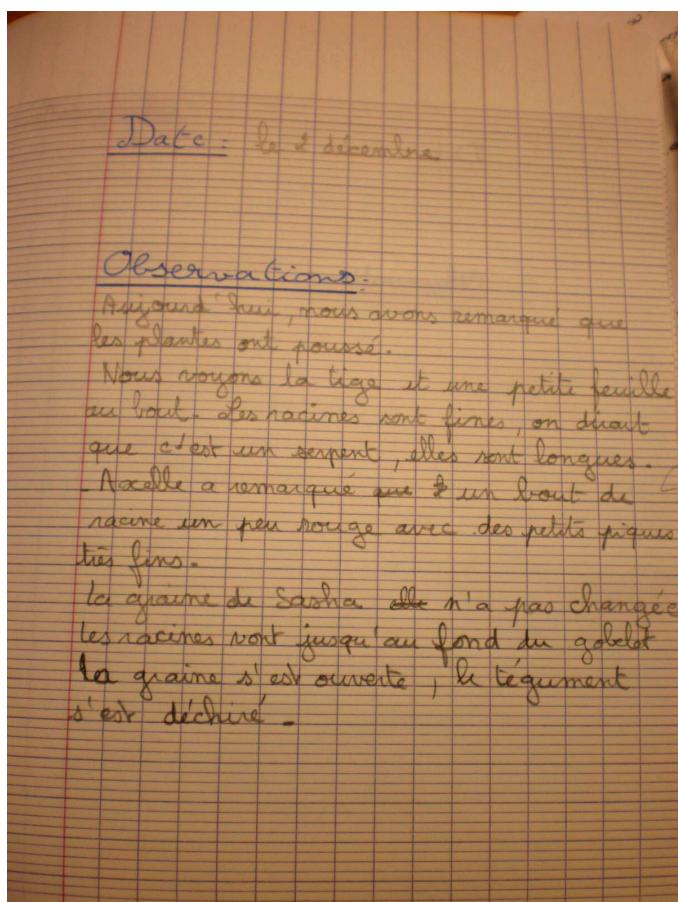 Date : le 2 décembre
Observations :
Aujourd'hui, nous avons remarqué que
les plantes ont poussé.
Nous voyons la tige et une petite feuille
au bout. Les racines sont fines, on dirait
que c'est un serpent, elles sont longues.
- Axelle a remarqué que un bout de
racine un peu rouge avec des petits piques
très fins.
la graine de Sasha elle n'a pas changée
les racines vont jusqu'au fond du gobelet
la graine s'est ouverte, le tégument
s'est déchiré.